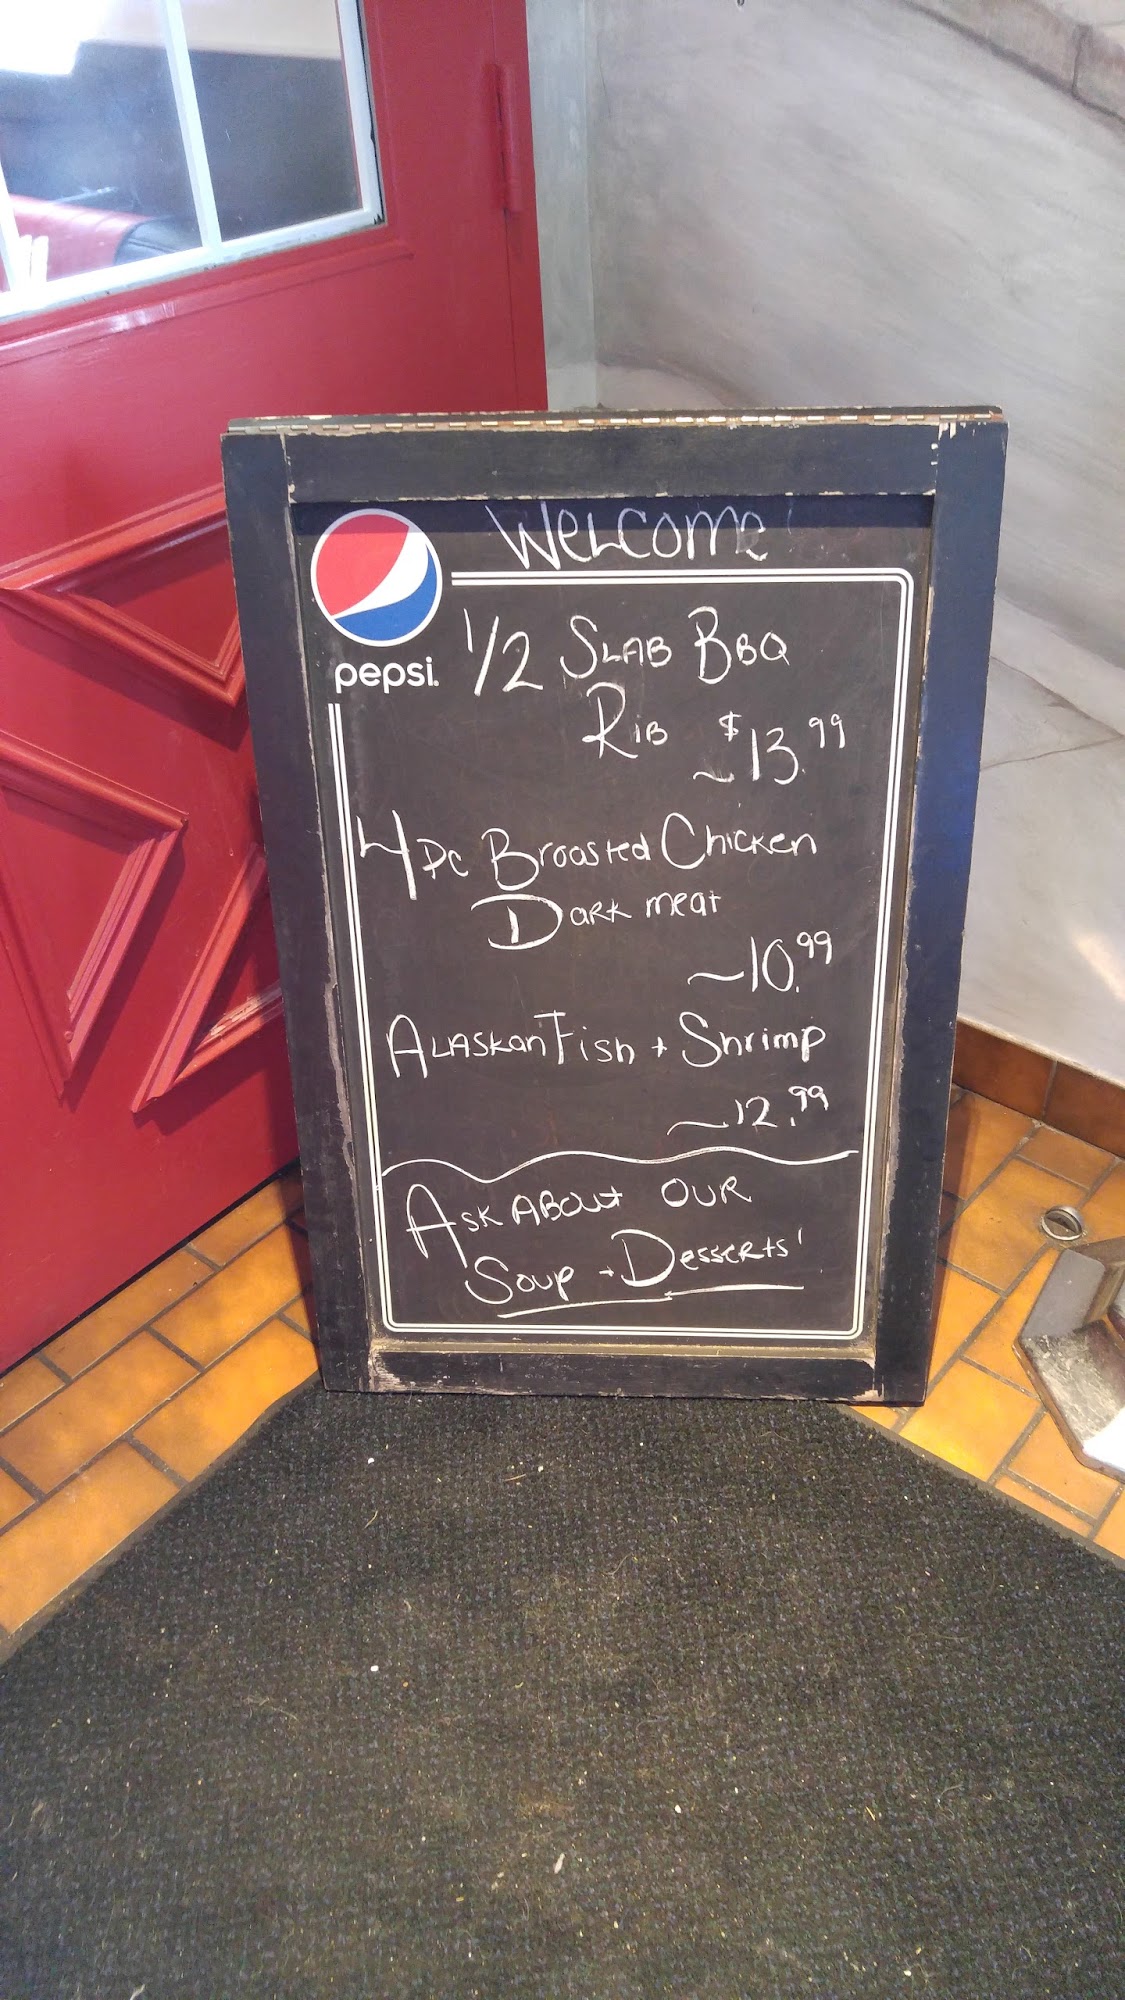 WELCOME
pepsi.
1/2 SLAB BBQ
RIB ~$13.99
4pc Broasted Chicken
DARK meat
~10.99
ALASKan Fish + Shrimp
~12.99
ASK ABOUt OUR
Soup + Desserts!